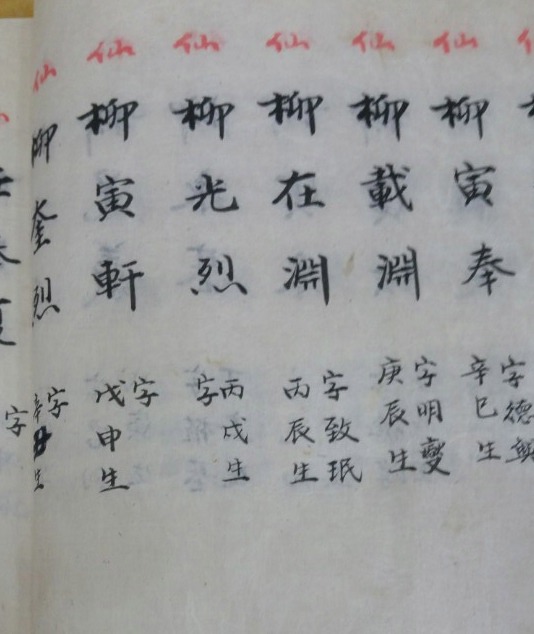 仙柳寅奉
字德
辛巳生
仙柳載淵
字明燮
庚辰生
仙柳在淵
字致珉
丙辰生
仙柳光烈
丙戌生
字
仙柳寅軒
字
戊申生
仙柳奎烈
字
辛 生
字